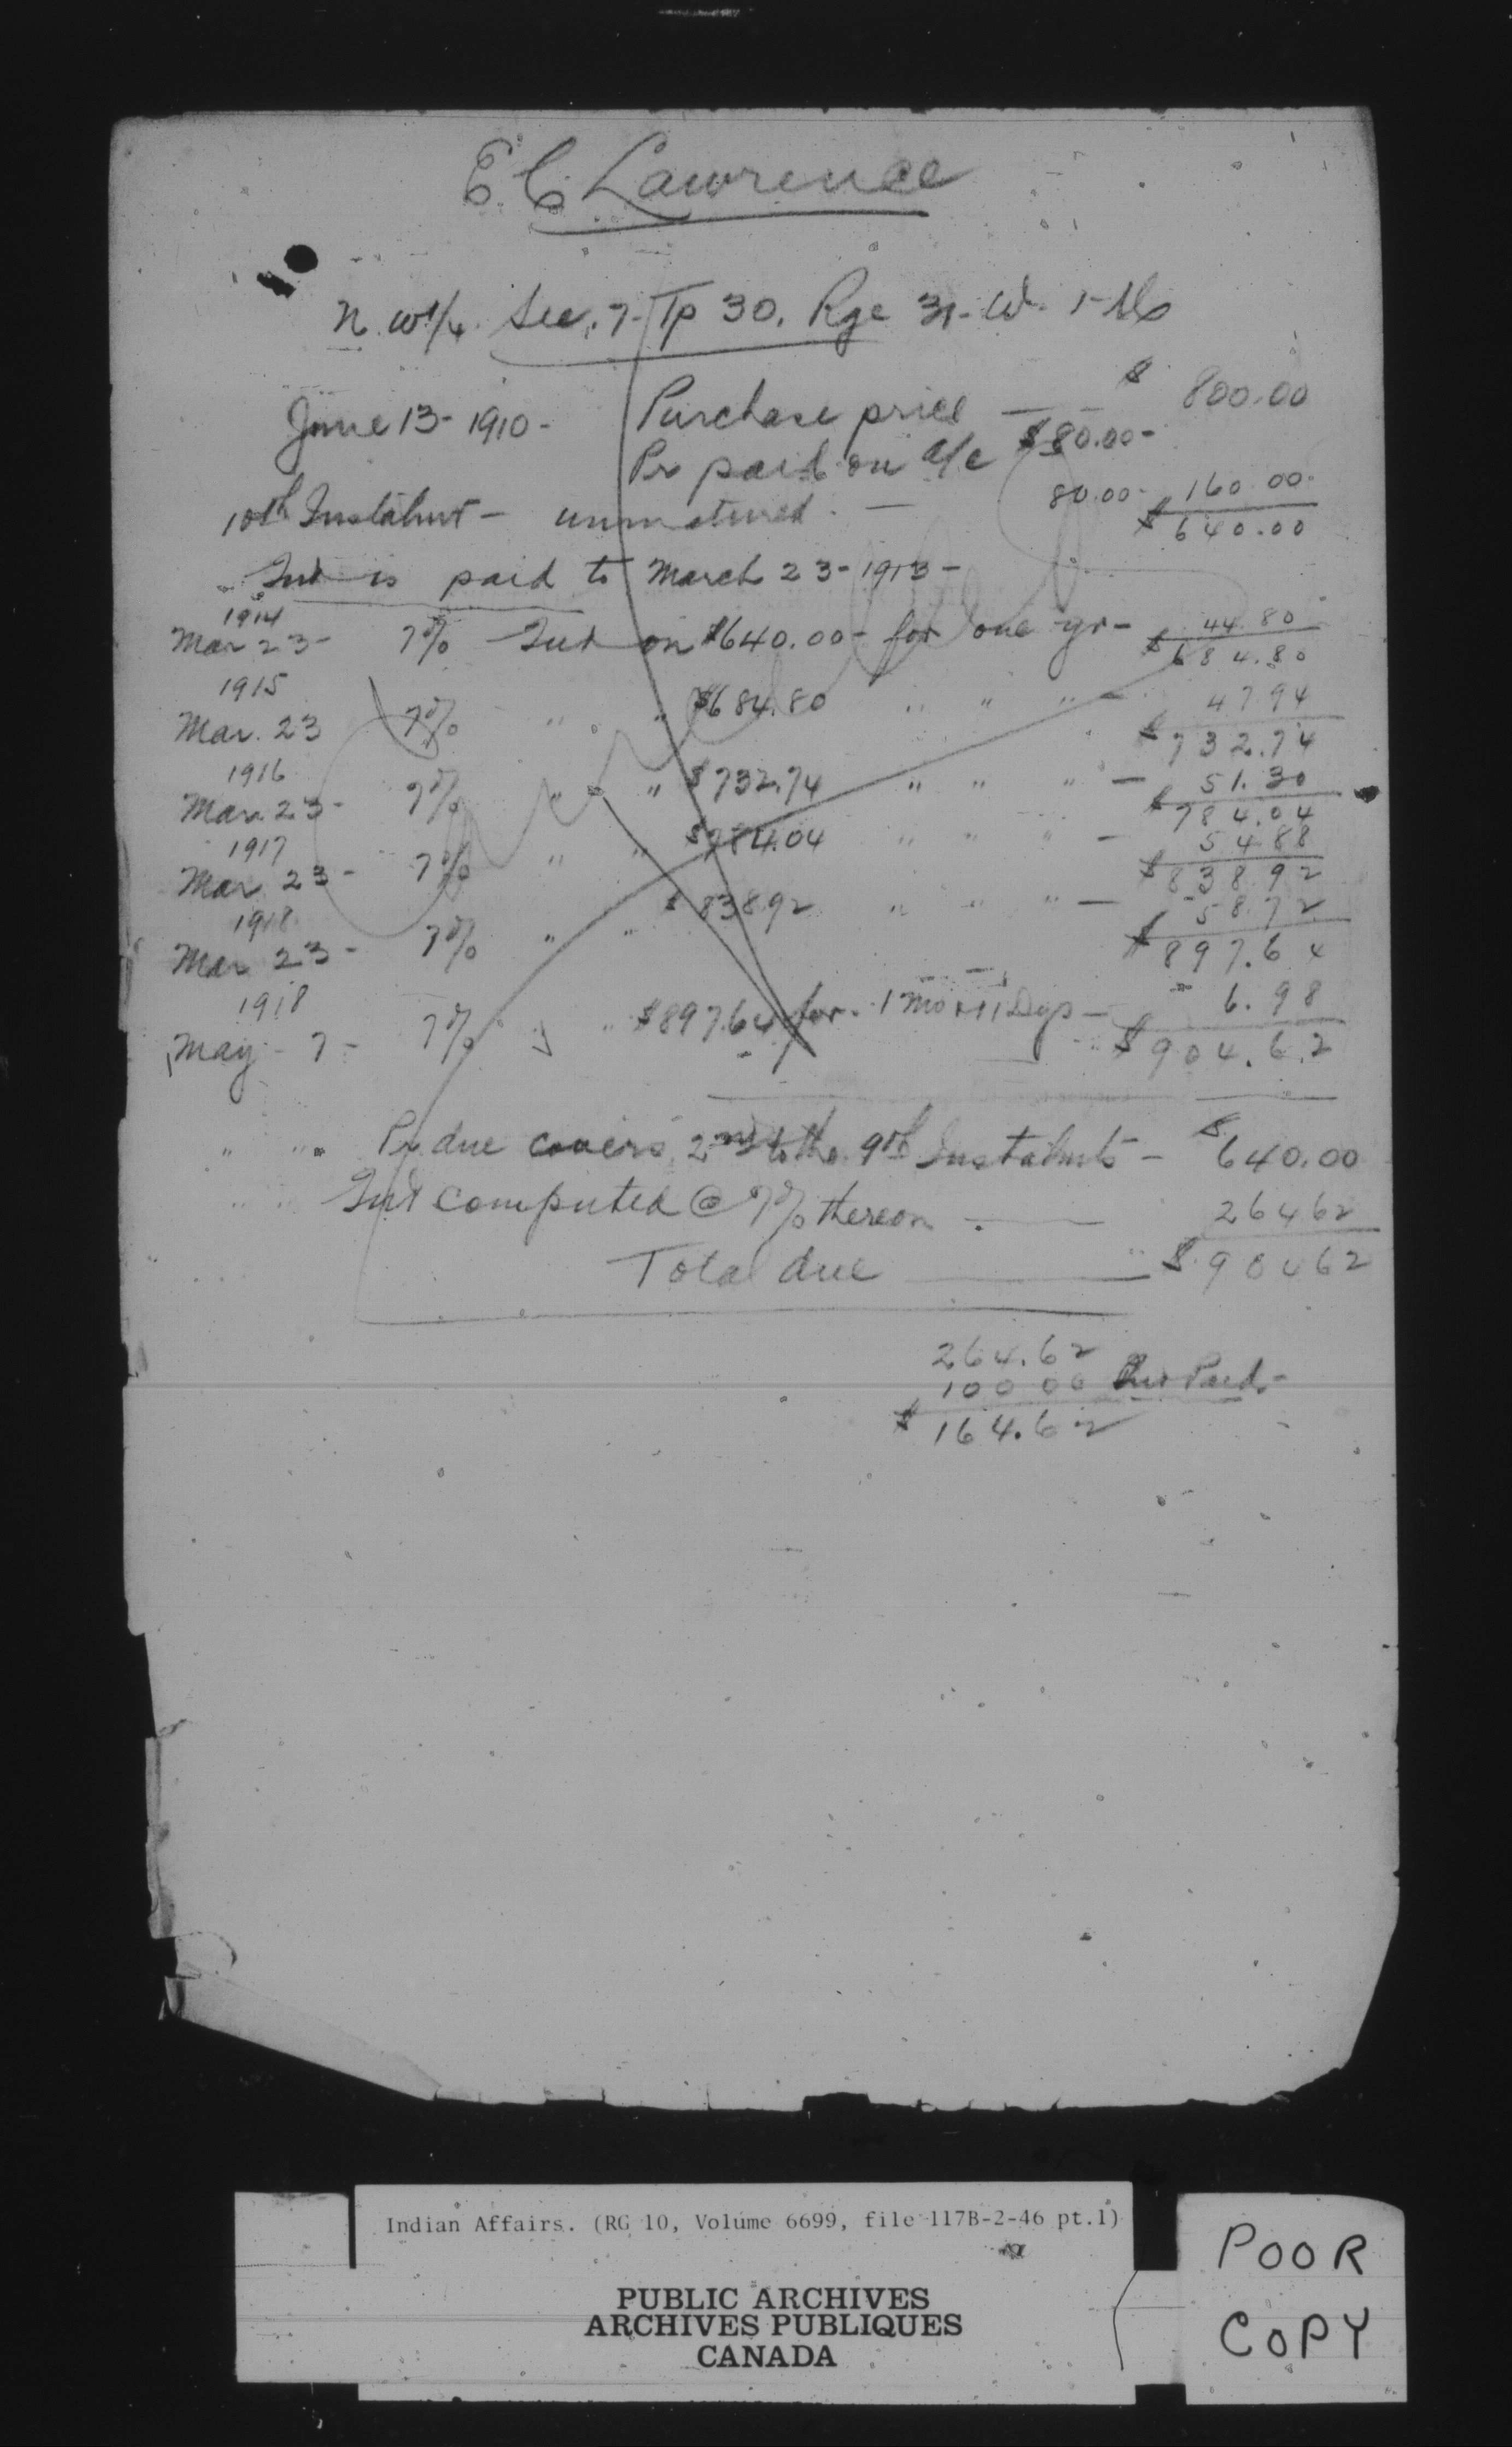 E C Lawrence
N. W 1/4 Sec. 7- Tp 30. Rge 31- W. 1-M
June 13- 1910- Purchase price — — $ 800.00
Pr paid on a/c $80.00-
10th Instalmt - unmatured. — 80.00- 160.00-
$ 640.00
Int is paid to March 23- 1913-
1914
Mar 23- 7% Int on $640.00- for one yr- 44.80
$ 684.80
1915
Mar. 23 7% " " $684.80 " " " - 47.94
$ 732.74
1916
Mar. 23- 7% " " $732.74 " " " - 51.30
$ 784.04
1917
Mar 23- 7% " " $784.04 " " " - 54.88
$ 838.92
1918
Mar 23- 7% " " $838.92 " " " - 58.72
$ 897.64
1918
May - 7- 7% " " $897.64 for 1 Mo & 11 Dys - 6.98
$ 904.62
" " Pr due covers 2nd to the 9th Instalmts - $ 640.00
" " Int computed @ 7% thereon. — 264 62
Total due — $ 904 62
264.62
100 00 Int Paid-
$ 164.62
Indian Affairs. (RG 10, Volume 6699, file 117B-2-46 pt.1)
PUBLIC ARCHIVES
ARCHIVES PUBLIQUES
CANADA
POOR
COPY